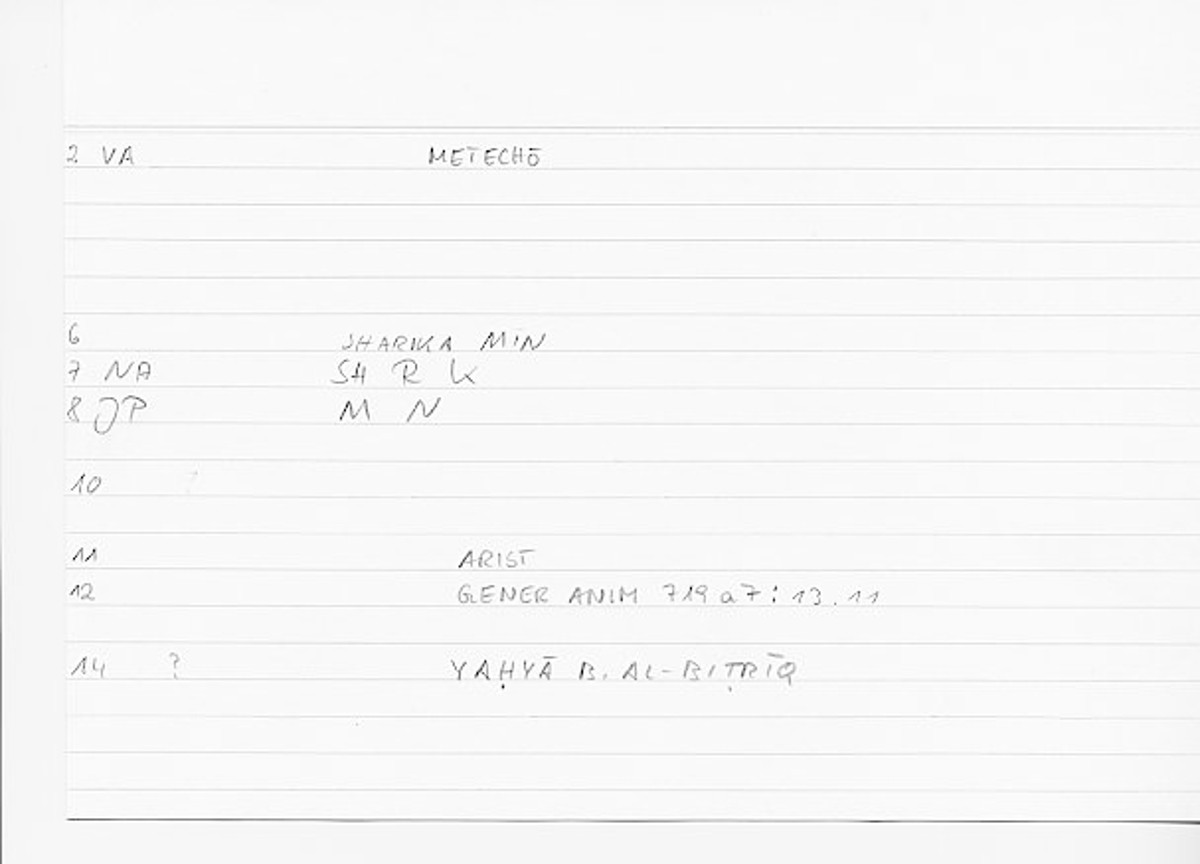 2 VA METECHŌ
6 SHARIKA MIN
7 NA SH R K
8 JP M N
10
11 ARIST
12 GENER ANIM 719a7:13.11
14 ? YAḤYĀ B. AL-BIṬRĪQ